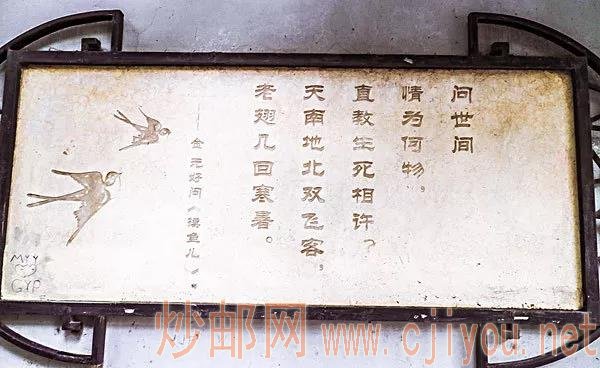 问世间
情为何物，
直教生死相许？
天南地北双飞客，
老翅几回寒暑。
——金 元好问《摸鱼儿》
MYY
GYP
炒邮网 www.cjiyou.net